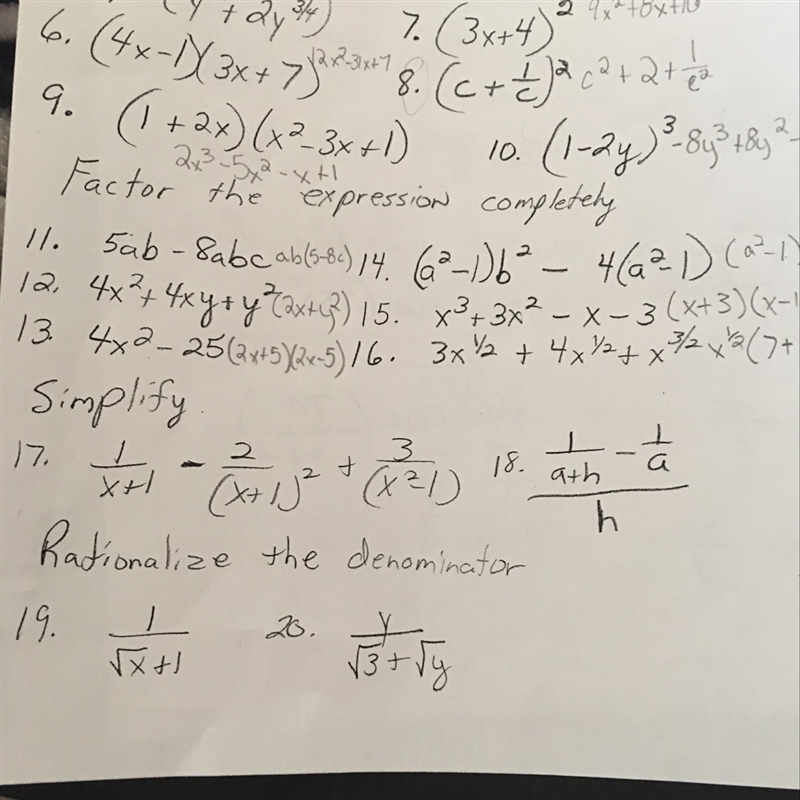 (y + 2y^3/4)
6. (4x-1)(3x+7) 12x²-31x+7
7. (3x+4)² 9x²+8x+16
8. (c + 1/c)² c² + 2 + 1/c²
9. (1+2x)(x²-3x+1) 2x³-5x²-x+1
10. (1-2y)³ -8y³+8y²-
Factor the expression completely
11. 5ab - 8abc ab(5-8c)
14. (a²-1)b² - 4(a²-1) (a²-1)
12. 4x²+4xy+y² (2x+y²)
15. x³+3x²-x-3 (x+3)(x-1
13. 4x²-25 (2x+5)(2x-5)
16. 3x^1/2 + 4x^1/2 + x^3/2 x^1/2(7+
Simplify.
17. 1/(x+1) - 2/(x+1)² + 3/(x²-1)
18. (1/(a+h) - 1/a)/h
Rationalize the denominator
19. 1/(√x+1)
20. y/(√3+√y)